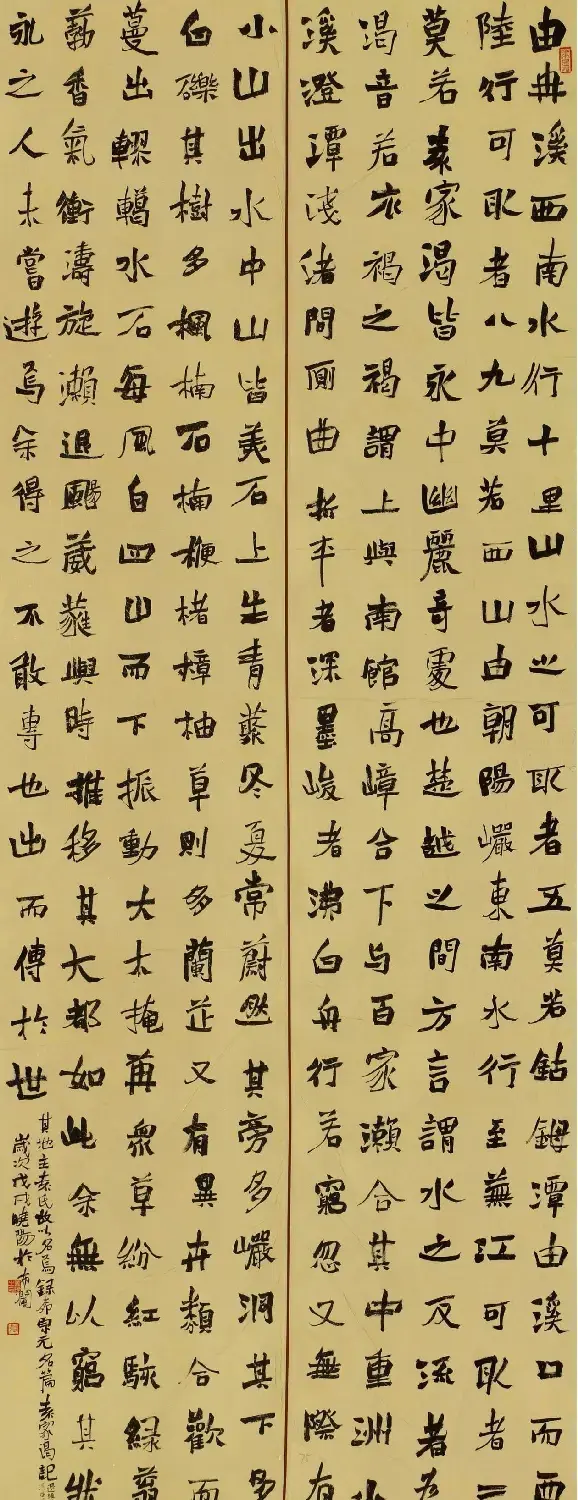 由冉溪西南水行十里山水之可取者五莫若鈷鉧潭由溪口而西
陸行可取者八九莫若西山由朝陽巖東南水行至蕪江可取者三
莫若袁家渴皆永中幽麗奇處也楚越之間方言謂水之反流者為
渴音若衣褐之褐謂上與南館高嶂合下与百家瀨合其中重洲小
溪澄潭淺渚間廁曲折平者深墨峻者沸白舟行若窮忽又無際有
小山出水中山皆美石上生青叢冬夏常蔚然其旁多巖洞其下多
白礫其樹多楓楠石楠楩楮樟柚草則多蘭芷又有異卉類合歡而
蔓出轇轕水石每風自四山而下振動大木掩苒眾草紛紅駭綠蓊
葧香氣衝濤旋瀨退颺葳蕤與時推移其大都如此余無以窮其狀
永之人未嘗遊焉余得之不敢專也出而傳於世
其地主袁氏故以名焉錄宗元名篇袁家渴記
歲次戊戌曉陽於